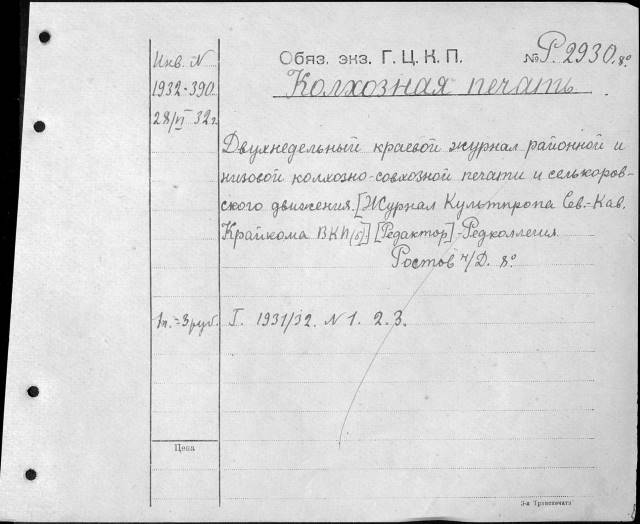 Инв. N
1932-390
28/VI 32г.
Обяз. экз. Г. Ц. К. П.
№ Р. 2930. 8°
Колхозная печать
Двухнедельный краевой журнал районной и
низовой колхозно-совхозной печати и селькоров-
ского движения. [Журнал Культпропа Сев.-Кав.
Крайкома ВКП(б)] [Редактор]-Редколлегия
Ростов н/Д. 8°
1п.=3руб. Г. 1931/32. N 1. 2. 3.
Цена
3-я Транспечать